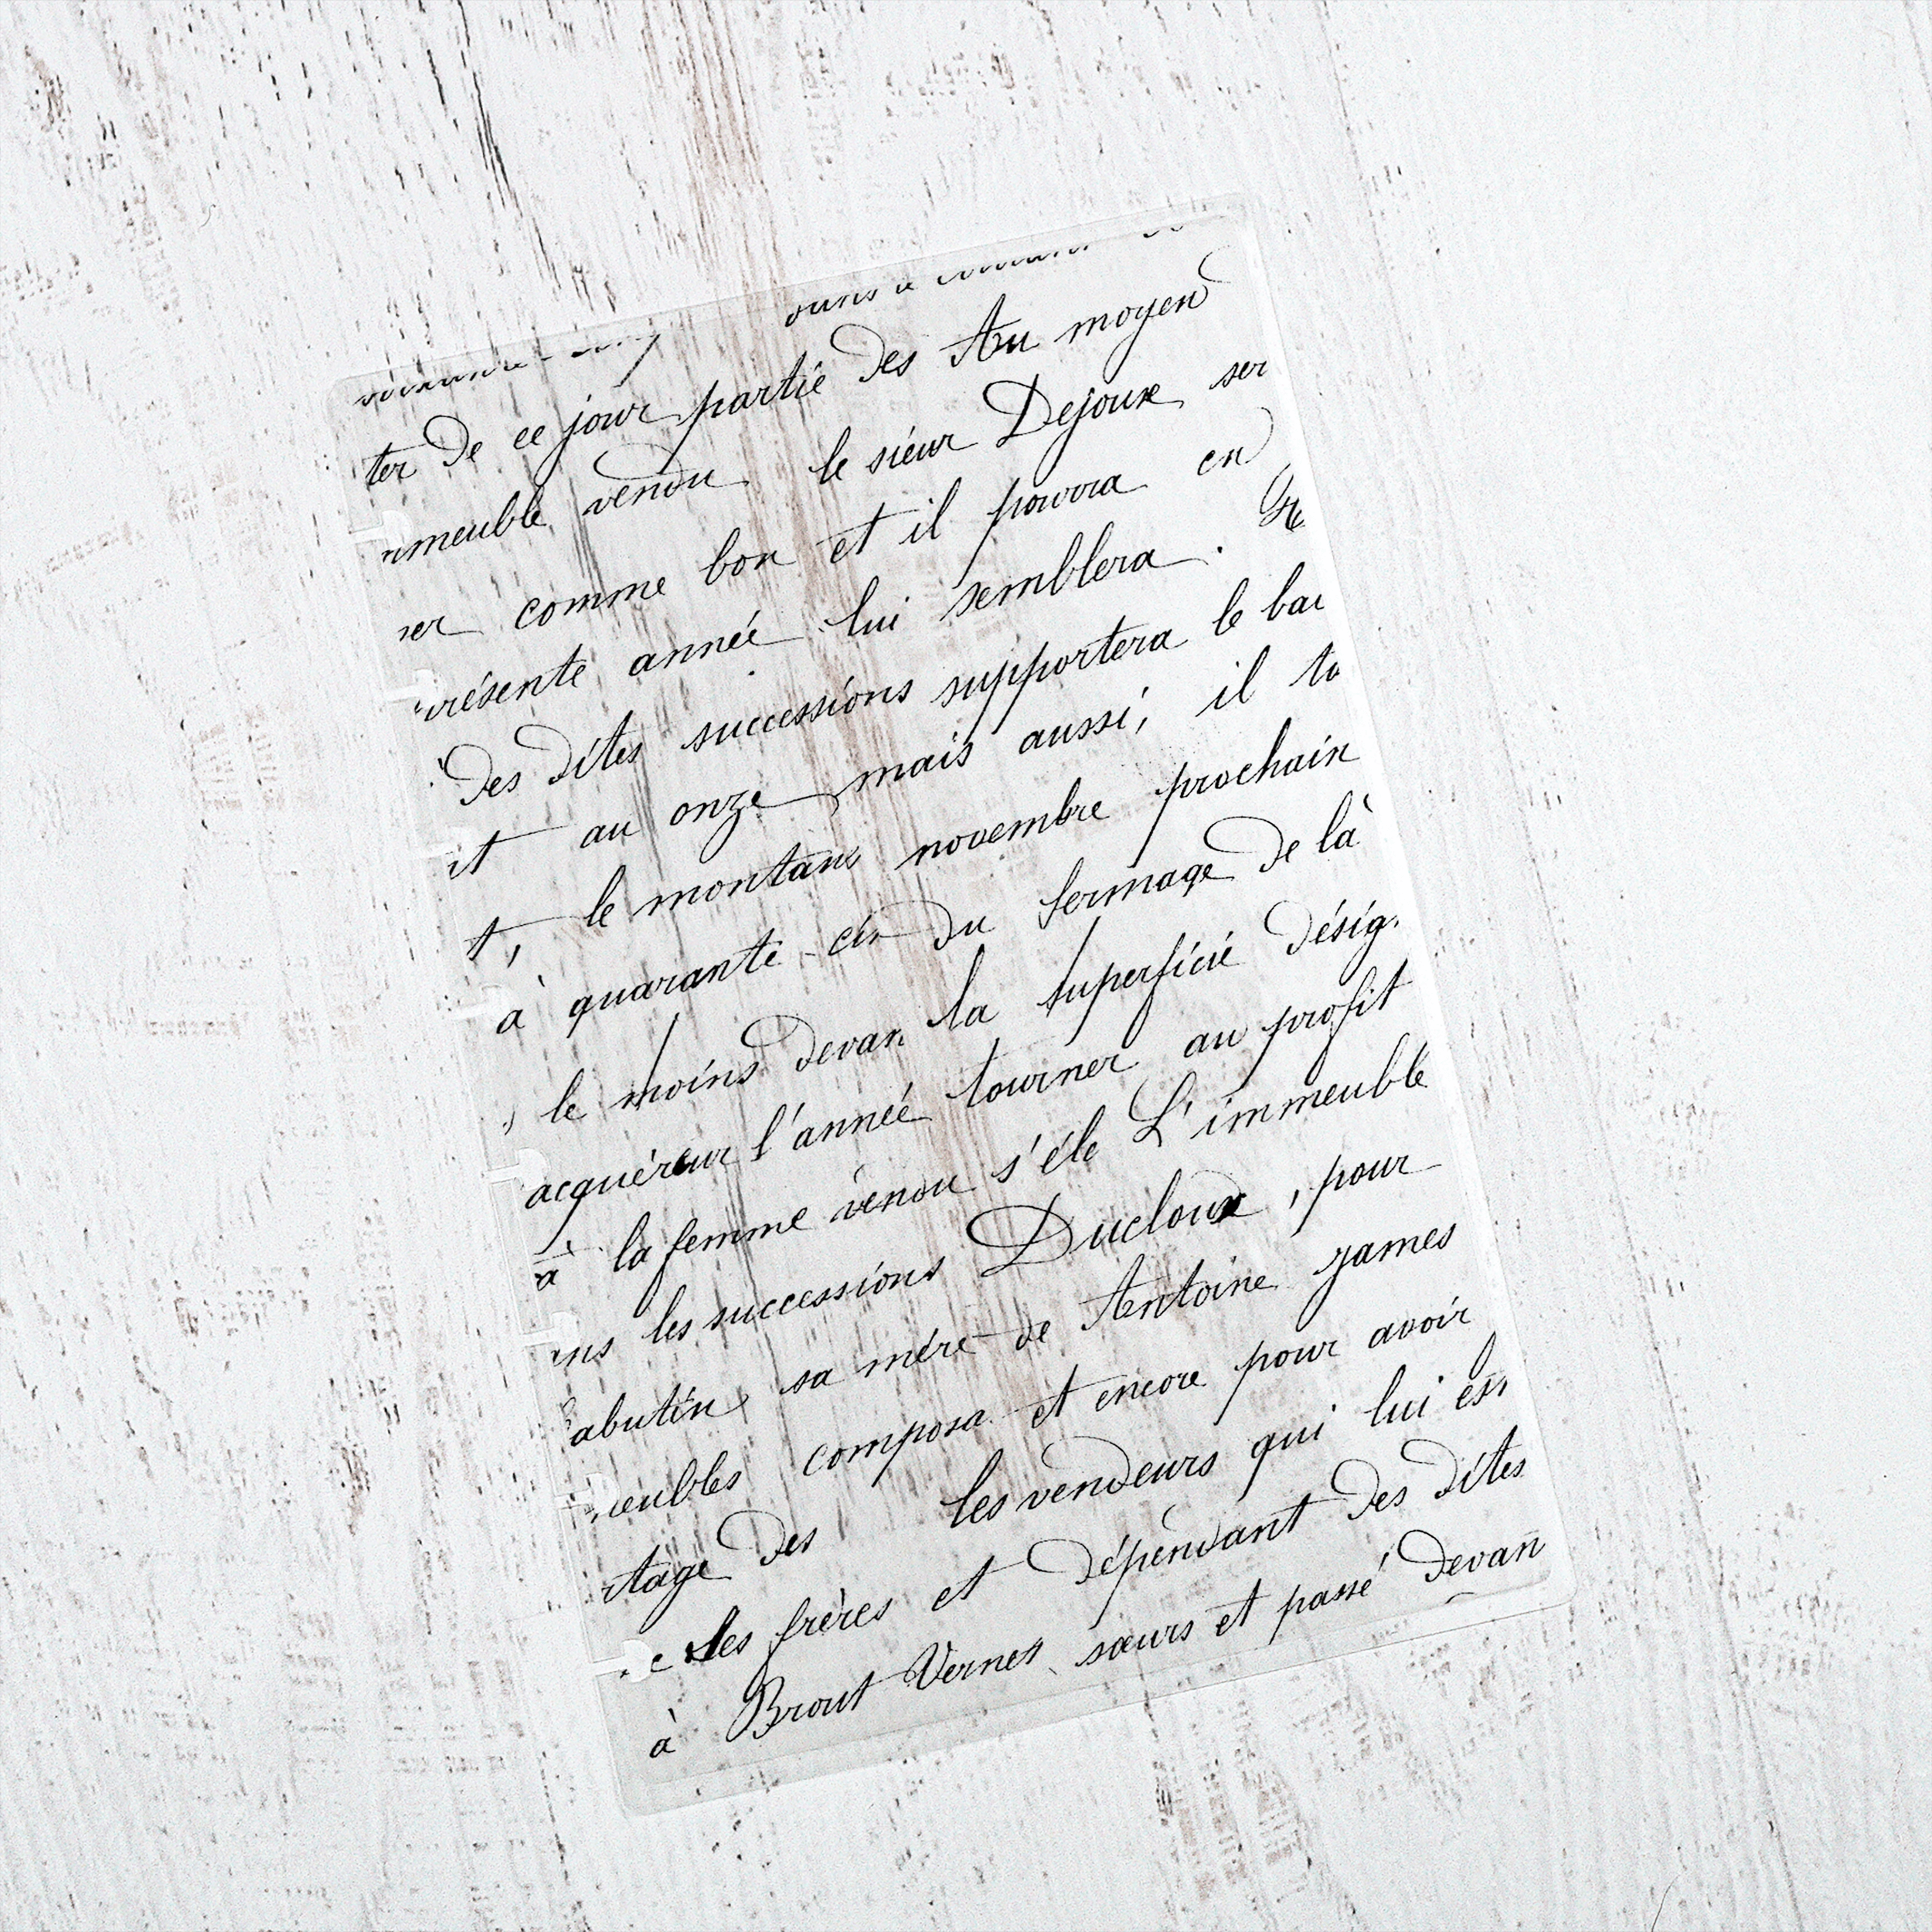 ter de ce jour partie des Au moyen
meuble vendu le sieur Dejoux ser
er comme bon et il pourra en
résente année lui semblera .
des dites successions supportera le bai
it au onze mais aussi, il to
t, le montant novembre prochain
à quarante-cin du fermage de la
, le moins devan la superficie désig
acquéreur l'année tourner au profit
à la femme vendu s'éle L'immeuble
ns les successions Ducloux, pour
abutin sa mère de Antoine james
eubles composa et encore pour avoir
tage des les vendeurs qui lui es
e Les frères et dépendant des dites
à Brout Vernet sœurs et passé devan